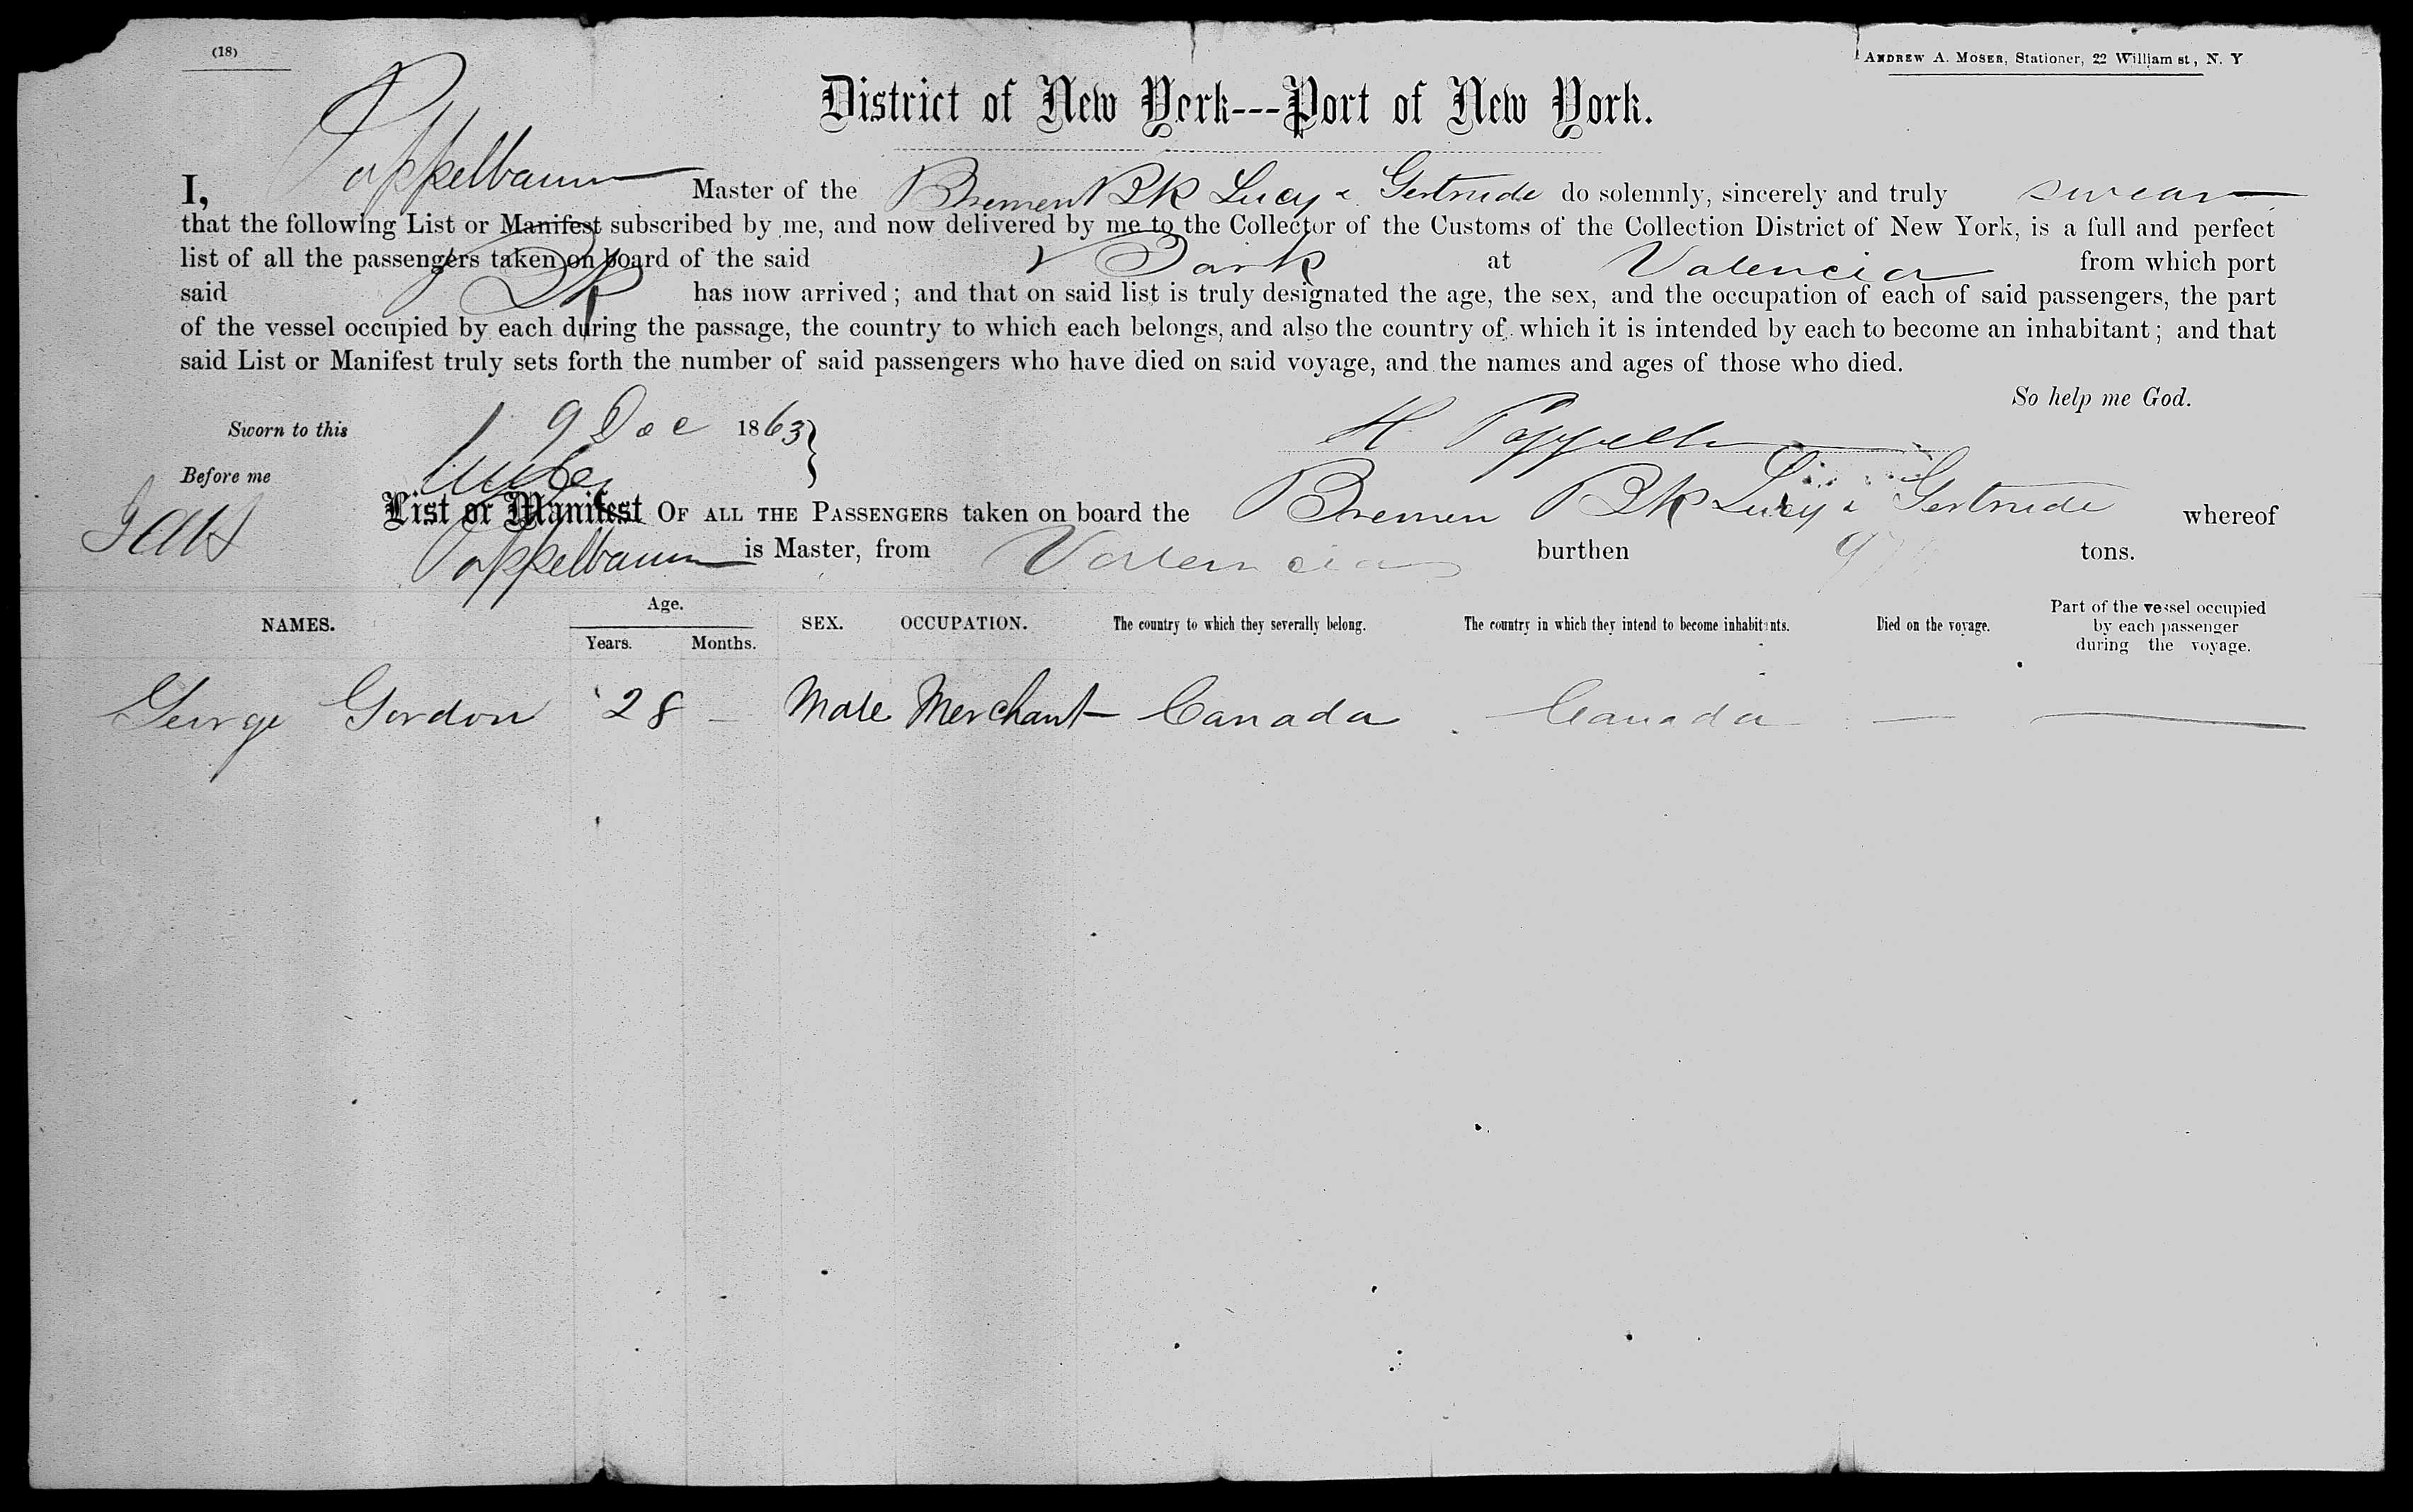 (18)
ANDREW A. MOSER, Stationer, 22 William st, N. Y
District of New York---Port of New York.
I, Poppelbaum Master of the Bremen Bk Lucy & Gertrude do solemnly, sincerely and truly swear
that the following List or Manifest subscribed by me, and now delivered by me to the Collector of the Customs of the Collection District of New York, is a full and perfect
list of all the passengers taken on board of the said Bark at Valencia from which port
said Bk has now arrived; and that on said list is truly designated the age, the sex, and the occupation of each of said passengers, the part
of the vessel occupied by each during the passage, the country to which each belongs, and also the country of which it is intended by each to become an inhabitant; and that
said List or Manifest truly sets forth the number of said passengers who have died on said voyage, and the names and ages of those who died.
So help me God.
Sworn to this 19 Dec 1863
H. Poppelb
Before me
List or Manifest OF ALL THE PASSENGERS taken on board the Bremen Bk Lucy & Gertrude whereof
Poppelbaum is Master, from Valencia burthen tons.
NAMES. Age. Years. Months. SEX. OCCUPATION. The country to which they severally belong. The country in which they intend to become inhabitants. Died on the voyage. Part of the vessel occupied by each passenger during the voyage.
George Gordon 28 — Male Merchant Canada Canada — —